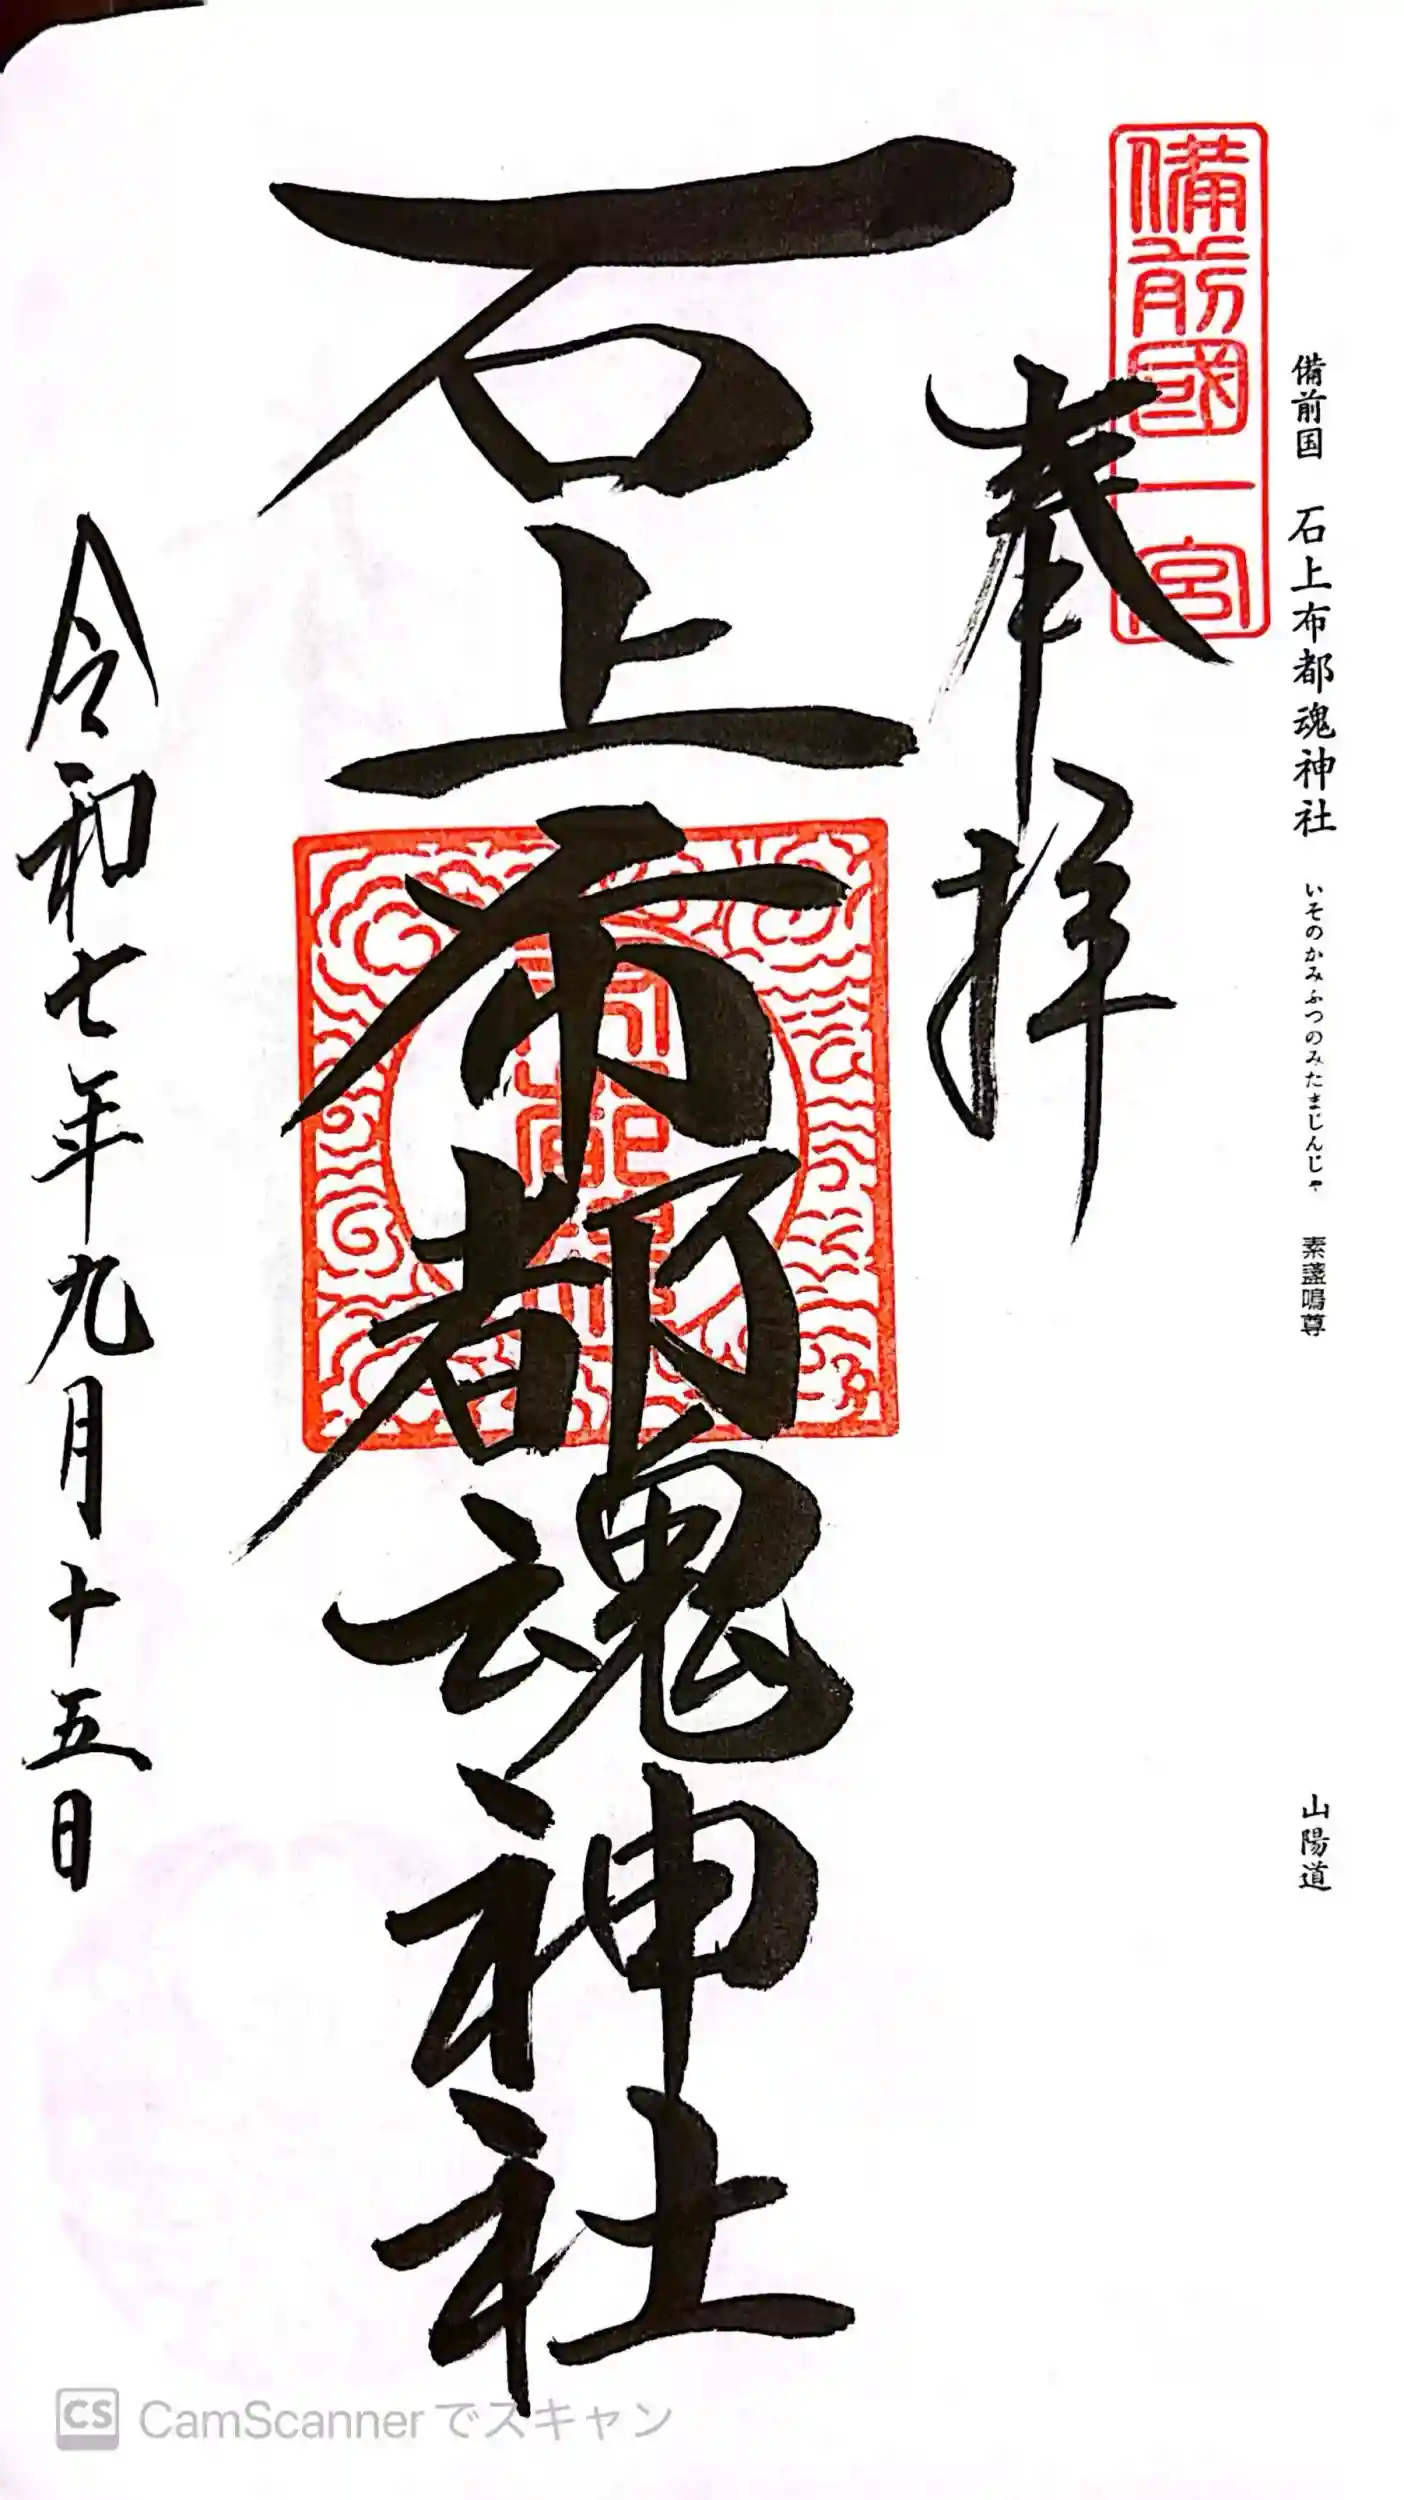 備前国 石上布都魂神社 いそのかみふつのみたまじんじゃ 素盞嗚尊 山陽道
備前國一宮
奉拝
石上布都魂神社
令和七年九月十五日
CS CamScannerでスキャン